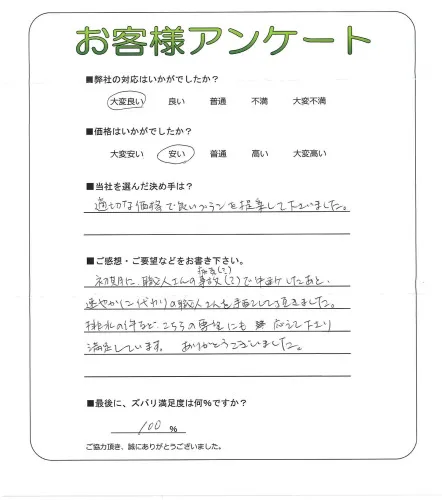 お客様アンケート
■弊社の対応はいかがでしたか？
大変良い 良い 普通 不満 大変不満
■価格はいかがでしたか？
大変安い 安い 普通 高い 大変高い
■当社を選んだ決め手は？
適切な価格で良いプランを提案して下さいました。
■ご感想・ご要望などをお書き下さい。
初期に、職人さんの事故(?)で中断したあと、
速やかに代わりの職人さんを手配して頂きました。
排水の件など、こちらの要望にも 応えて下さり
満足しています。 ありがとうございました。
■最後に、ズバリ満足度は何%ですか？
100 %
ご協力頂き、誠にありがとうございました。